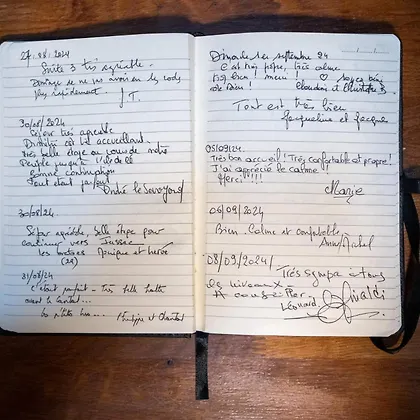 27.08.2024
Suite 3 très agréable.
Domage de ne pas avoir eu le code
plus rapidement.
J T.
30/08/2024
Séjour très agréable
accueillant.
Très belle étape au cours de notre
périple jusqu'à l'île de Ré
bonne continuation
Tout était parfait
André le Savoyard
30/08/24.
Séjour agréable, belle étape pour
continuer vers Jussac
les Monique et hervé
31/08/24
C'était parfait - très belle halte
avant le Cantal...
Les p'tits Philippe et Chantal
Dimanche 1er septembre 24
C'est très propre, très calme
très bien ! merci ! ♡ soyez bénis
Claudine et Christophe B.
Tout est très bien
Jacqueline et Jacques
05/09/24.
Très bon accueil ! Très confortable et propre !
J'ai apprécié le calme !!
Merci !!!
Marie
06/09/2024
Bien. Calme et confortable
Michel
08/09/2024/
Très sympa à tous
les niveaux
A conseiller
Léonard Vivaldi